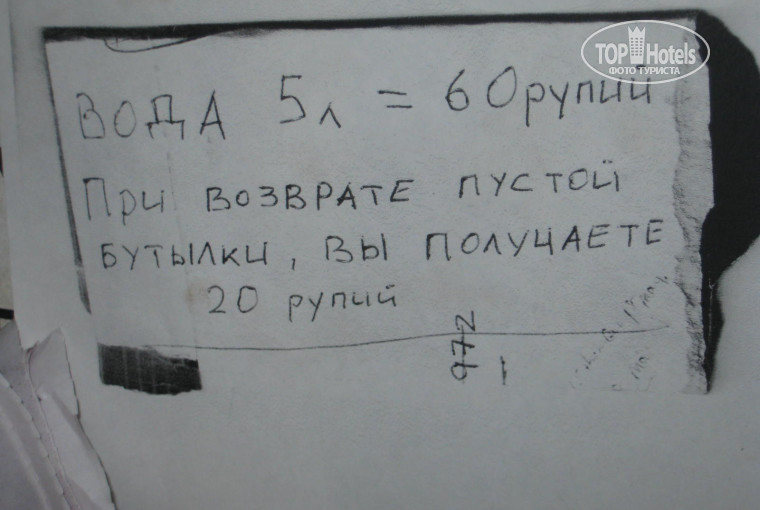 TOP Hotels
ФОТО ТУРИСТА
ВОДА 5л = 60рупий
При ВОЗВРАТЕ ПУСТОЙ
БУТЫЛКИ, ВЫ ПОЛУЧАЕТЕ
20 рупий
972